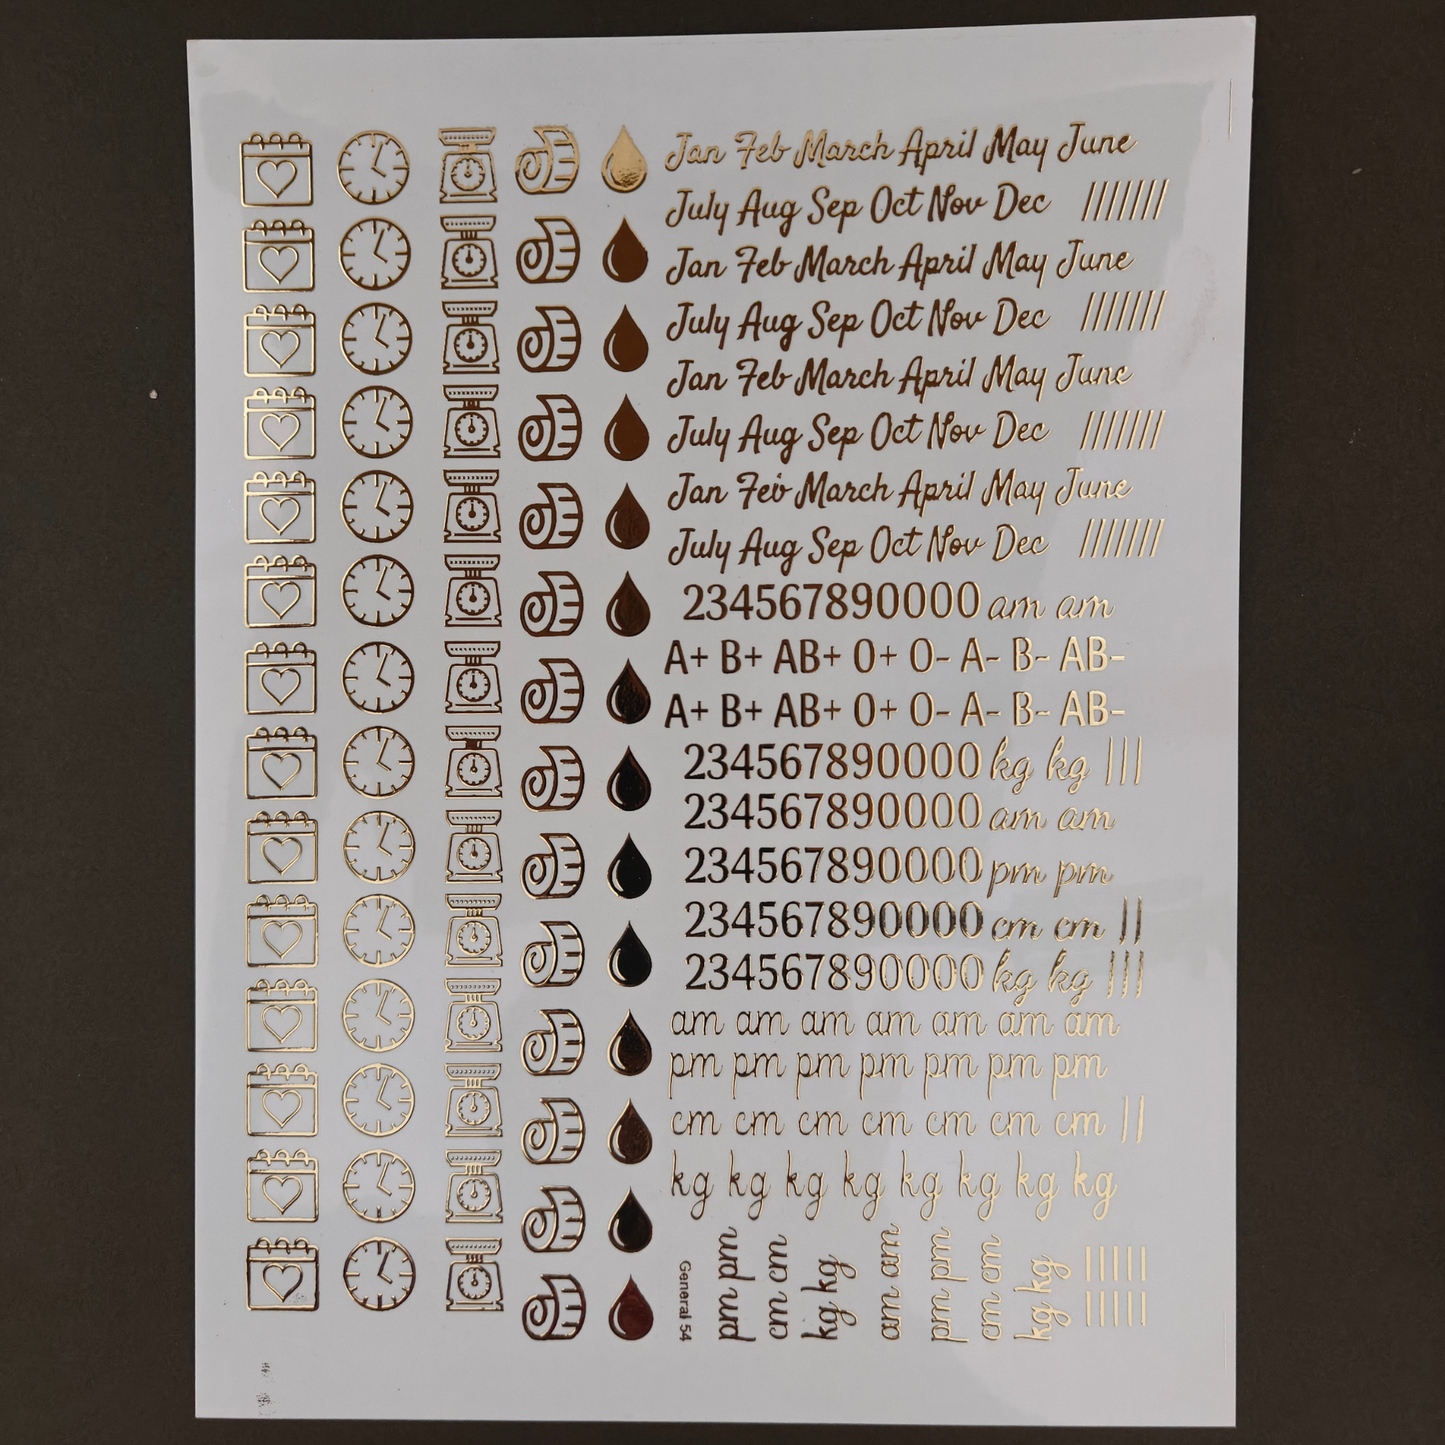 Jan Feb March April May June
July Aug Sep Oct Nov Dec |||||||
Jan Feb March April May June
July Aug Sep Oct Nov Dec |||||||
Jan Feb March April May June
July Aug Sep Oct Nov Dec |||||||
Jan Feb March April May June
July Aug Sep Oct Nov Dec |||||||
234567890000 am am
A+ B+ AB+ O+ O- A- B- AB-
A+ B+ AB+ O+ O- A- B- AB-
234567890000 kg kg |||
234567890000 am am
234567890000 pm pm
234567890000 cm cm ||
234567890000 kg kg |||
am am am am am am am
pm pm pm pm pm pm pm
cm cm cm cm cm cm cm ||
kg kg kg kg kg kg kg kg
General 54
pm pm
cm cm
kg kg
am am
pm pm
cm cm
kg kg
|||||
|||||